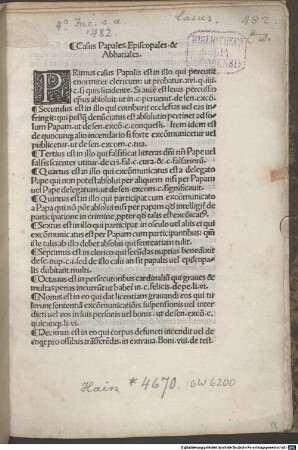 4° Inc. s. a.
482.
Casus
482.
BIBLIOTHECA
REGIA
MONACENSIS
¶ Casus Papales Episcopales &
Abbatiales.
PRimus casus Papalis est in illo qui percutit
enormiter clericum: ut probatur. xvii. q. iiii.
c. si quis suadente. Si autē est leuis percussio
ep̄us absoluit ut in. c. peruenit. de sen. excō.
¶ Secundus est in illo qui comburit ecclesias uel eas in
fringit: qui postq̄ denūciatus est absolutio pertinet ad so-
lum Papam. ut de sen. exco. c. conquesti. Item idem est
de quocunq; alio incendario si forte excōmunicetur uel
publicetur. ut de sen. excom. c. tua.
¶ Tertius est in illo qui falsificat litteras dn̄i nr̄i Pape uel
falsis scienter utitur de cri. fal. c. dura. & c. ad falsariorū.
¶ Quartus est in illo qui excōmunicatus est a delegato
Pape qui non potest absolui per alium nisi per Papam
uel Pape delegatum. ut de sen. excom. c. significauit.
¶ Quintus est in illo qui participat cum excōmunicato
a Papa qui nō pōt absolui nisi per papam
participatione in crimine, ppter qd̄ talis est excōīcatꝰ.
¶ Sextus est in illo qui participat in osculo uel aliis ei qui
excōmunicatus est per Papam cum participantibus: qui
iste talis ab illo debet absolui qui sententiam tulit.
¶ Septimus est in clerico qui secūdas nuptias benedixit
de sen. nup. c. i. sed de illo casu an sit papalis uel episcopa-
lis dubitant multi.
¶ Octauus est in persecutoribus cardinaliū qui graues &
multas penas incurrūt ut habeṫ in. c. felicis. de pe. li. vi.
¶ Nonus est in eo qui dat licentiam grauandi eos qui tu
lerunt sententiā excōmunicatiōis suspensionis uel inter
dicti uel eos in suis personis uel bonis. ut de sen. excō. c.
quicunq;. li. vi.
¶ Decimus est in eo qui corpus defuncti incendit uel de
coqt pro ossibus trāsferēdis. in extraua. Boni. viii. de test.
Hain * 4670. GW 6200